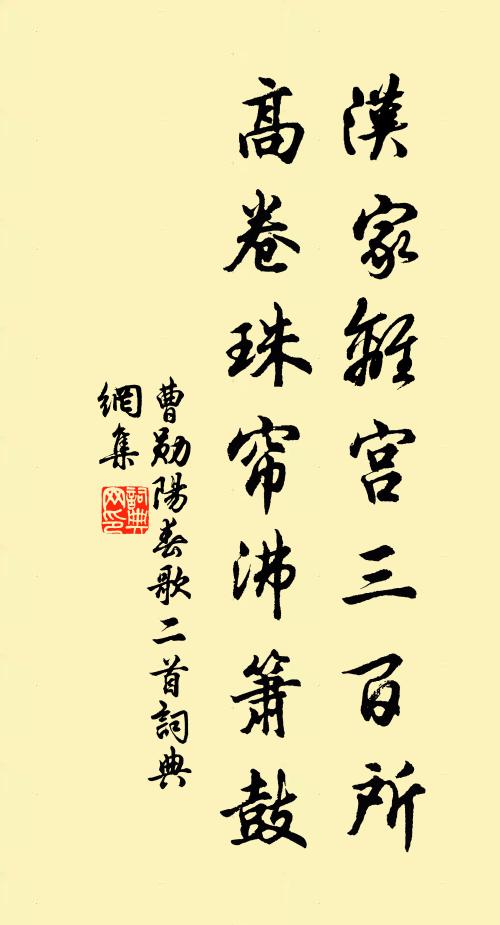 漢家離宮三百所
高卷珠帘沸簫鼓
曹勛陽春歌二首詞典
網集
詞典
网印